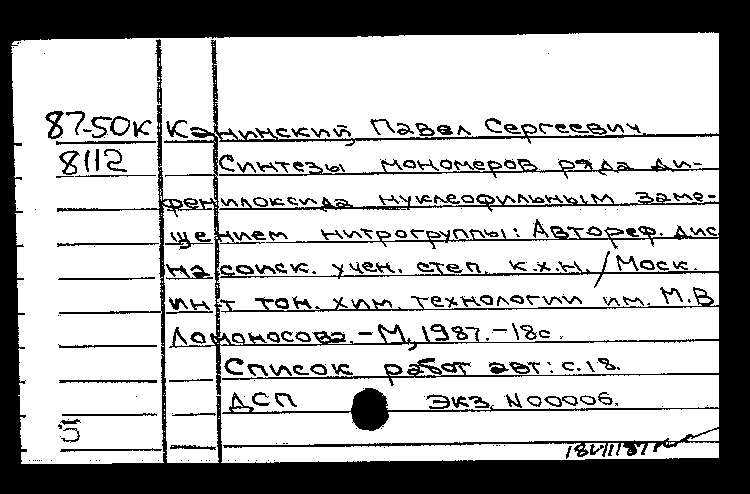 87-50К Канинский, Павел Сергеевич.
8112 Синтезы мономеров ряда ди-
фенилоксида нуклеофильным заме-
щением нитрогруппы: Автореф. дис
на соиск. учен. степ. к.х.н. / Моск.
ин-т тон. хим. технологии им. М.В
Ломоносова. - М, 1987. - 18с.
Список работ авт: с. 18.
ДСП Экз. N00006.